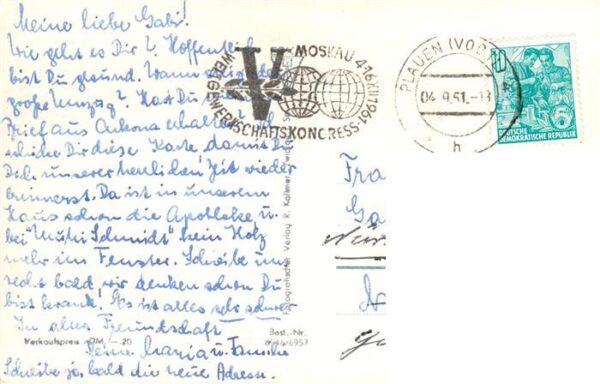 Meine liebe Gabi!
Wie geht es Dir? Hoffentlich
bist Du gesund. Wann
große Umzug? Hast Du
Brief aus Ankona erhalten?
schicke Dir diese Karte damit Du
Dich unserer herrlichen Zeit wieder
erinnerst. Da ist in unserem
Haus schon die Apotheke, u.
bei "Mutti Schmidt" kein Holz
mehr im Fenster. Schreibe uns
recht bald, wir denken schon Du
bist krank! Es ist alles sehr schwer
In alter Freundschaft
Deine Maria u. Familie
Schreibe ja bald die neue Adresse.
Verkaufspreis DM -,20
Best.-Nr.
6957
Fotografischer Verlag R. Kallmer, Zwi
V. WELTGEWERKSCHAFTSKONGRESS
MOSKAU 4.-16.XII.1961
PLAUEN (VOGTL)
04.9.61.-18
h
DEUTSCHE
DEMOKRATISCHE REPUBLIK
Fra
Ga